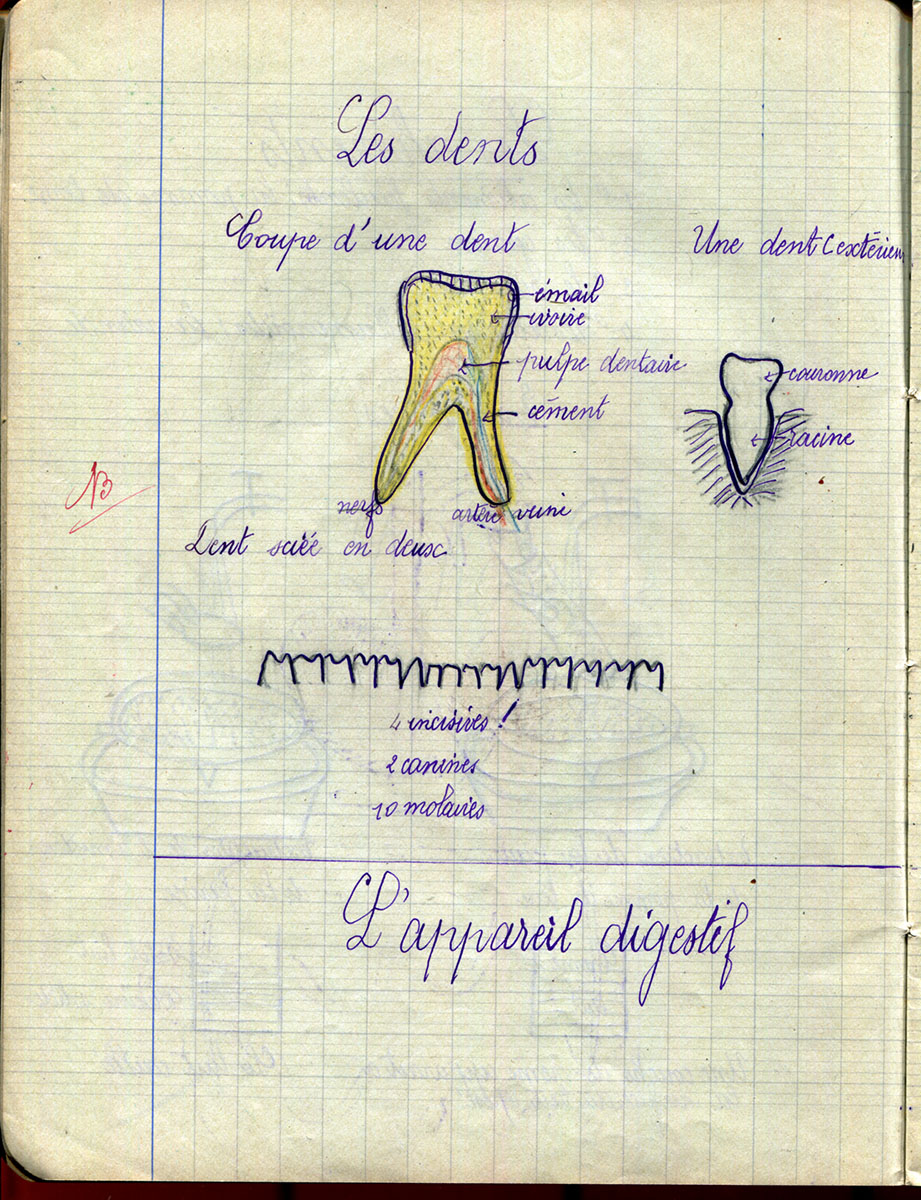 Les dents
Coupe d'une dent
Une dent (extérieur
émail
ivoire
pulpe dentaire
cément
couronne
racine
nerfs
artère
veine
Dent sciée en deux
4 incisives !
2 canines
10 molaires
L'appareil digestif